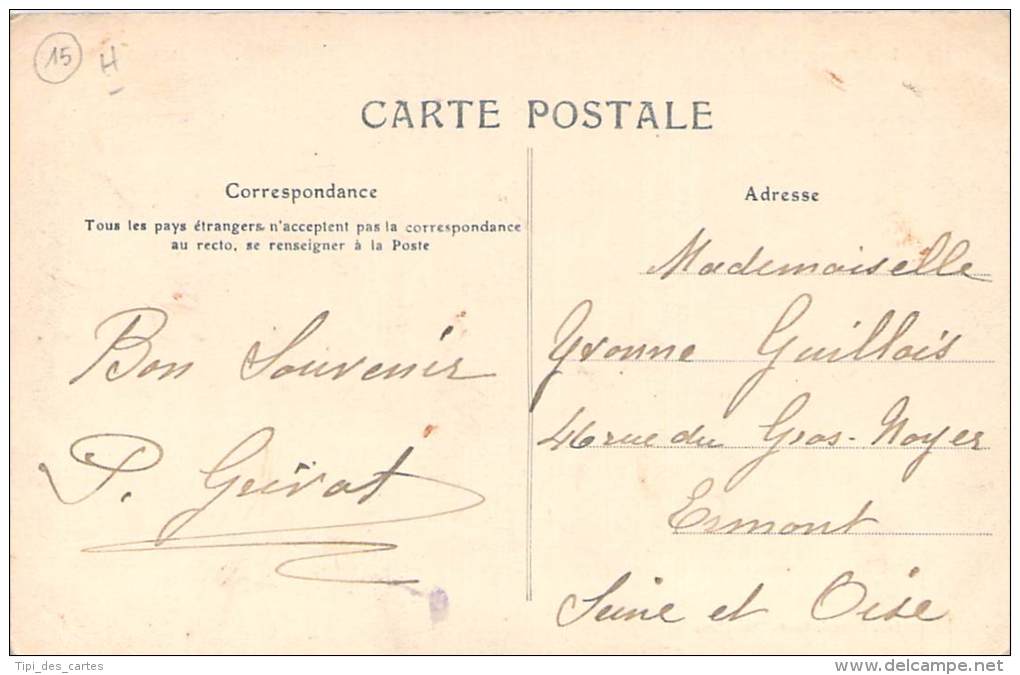 15
H
CARTE POSTALE
Correspondance
Tous les pays étrangers n'acceptent pas la correspondance
au recto, se renseigner à la Poste
Bon Souvenir
Adresse
Mademoiselle
Yvonne Guillois
46 rue du Gros-Noyer
Ermont
Seine et Oise
Tipi_des_cartes
www.delcampe.net